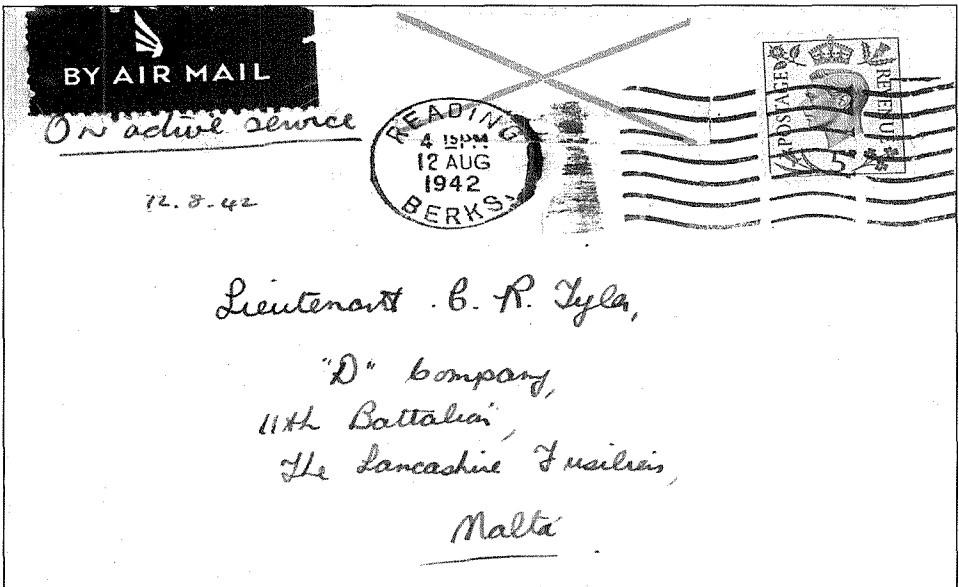 BY AIR MAIL
On active service
READING
4 15 PM
12 AUG
1942
BERKS.
POSTAGE
REVENUE
12.8.42
Lieutenant C. R. Tyler,
"D" Company,
11th Battalion,
The Lancashire Fusiliers,
Malta